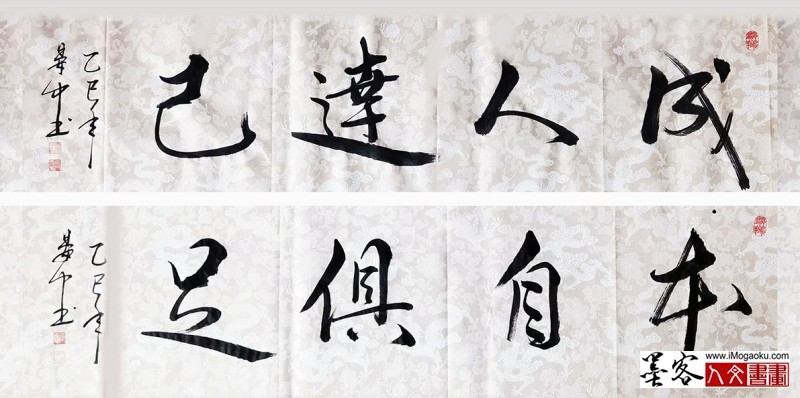 成人達己
乙巳年
中书
本自俱足
乙巳年
中书
墨客
www.iMogaoku.com
人文書畫